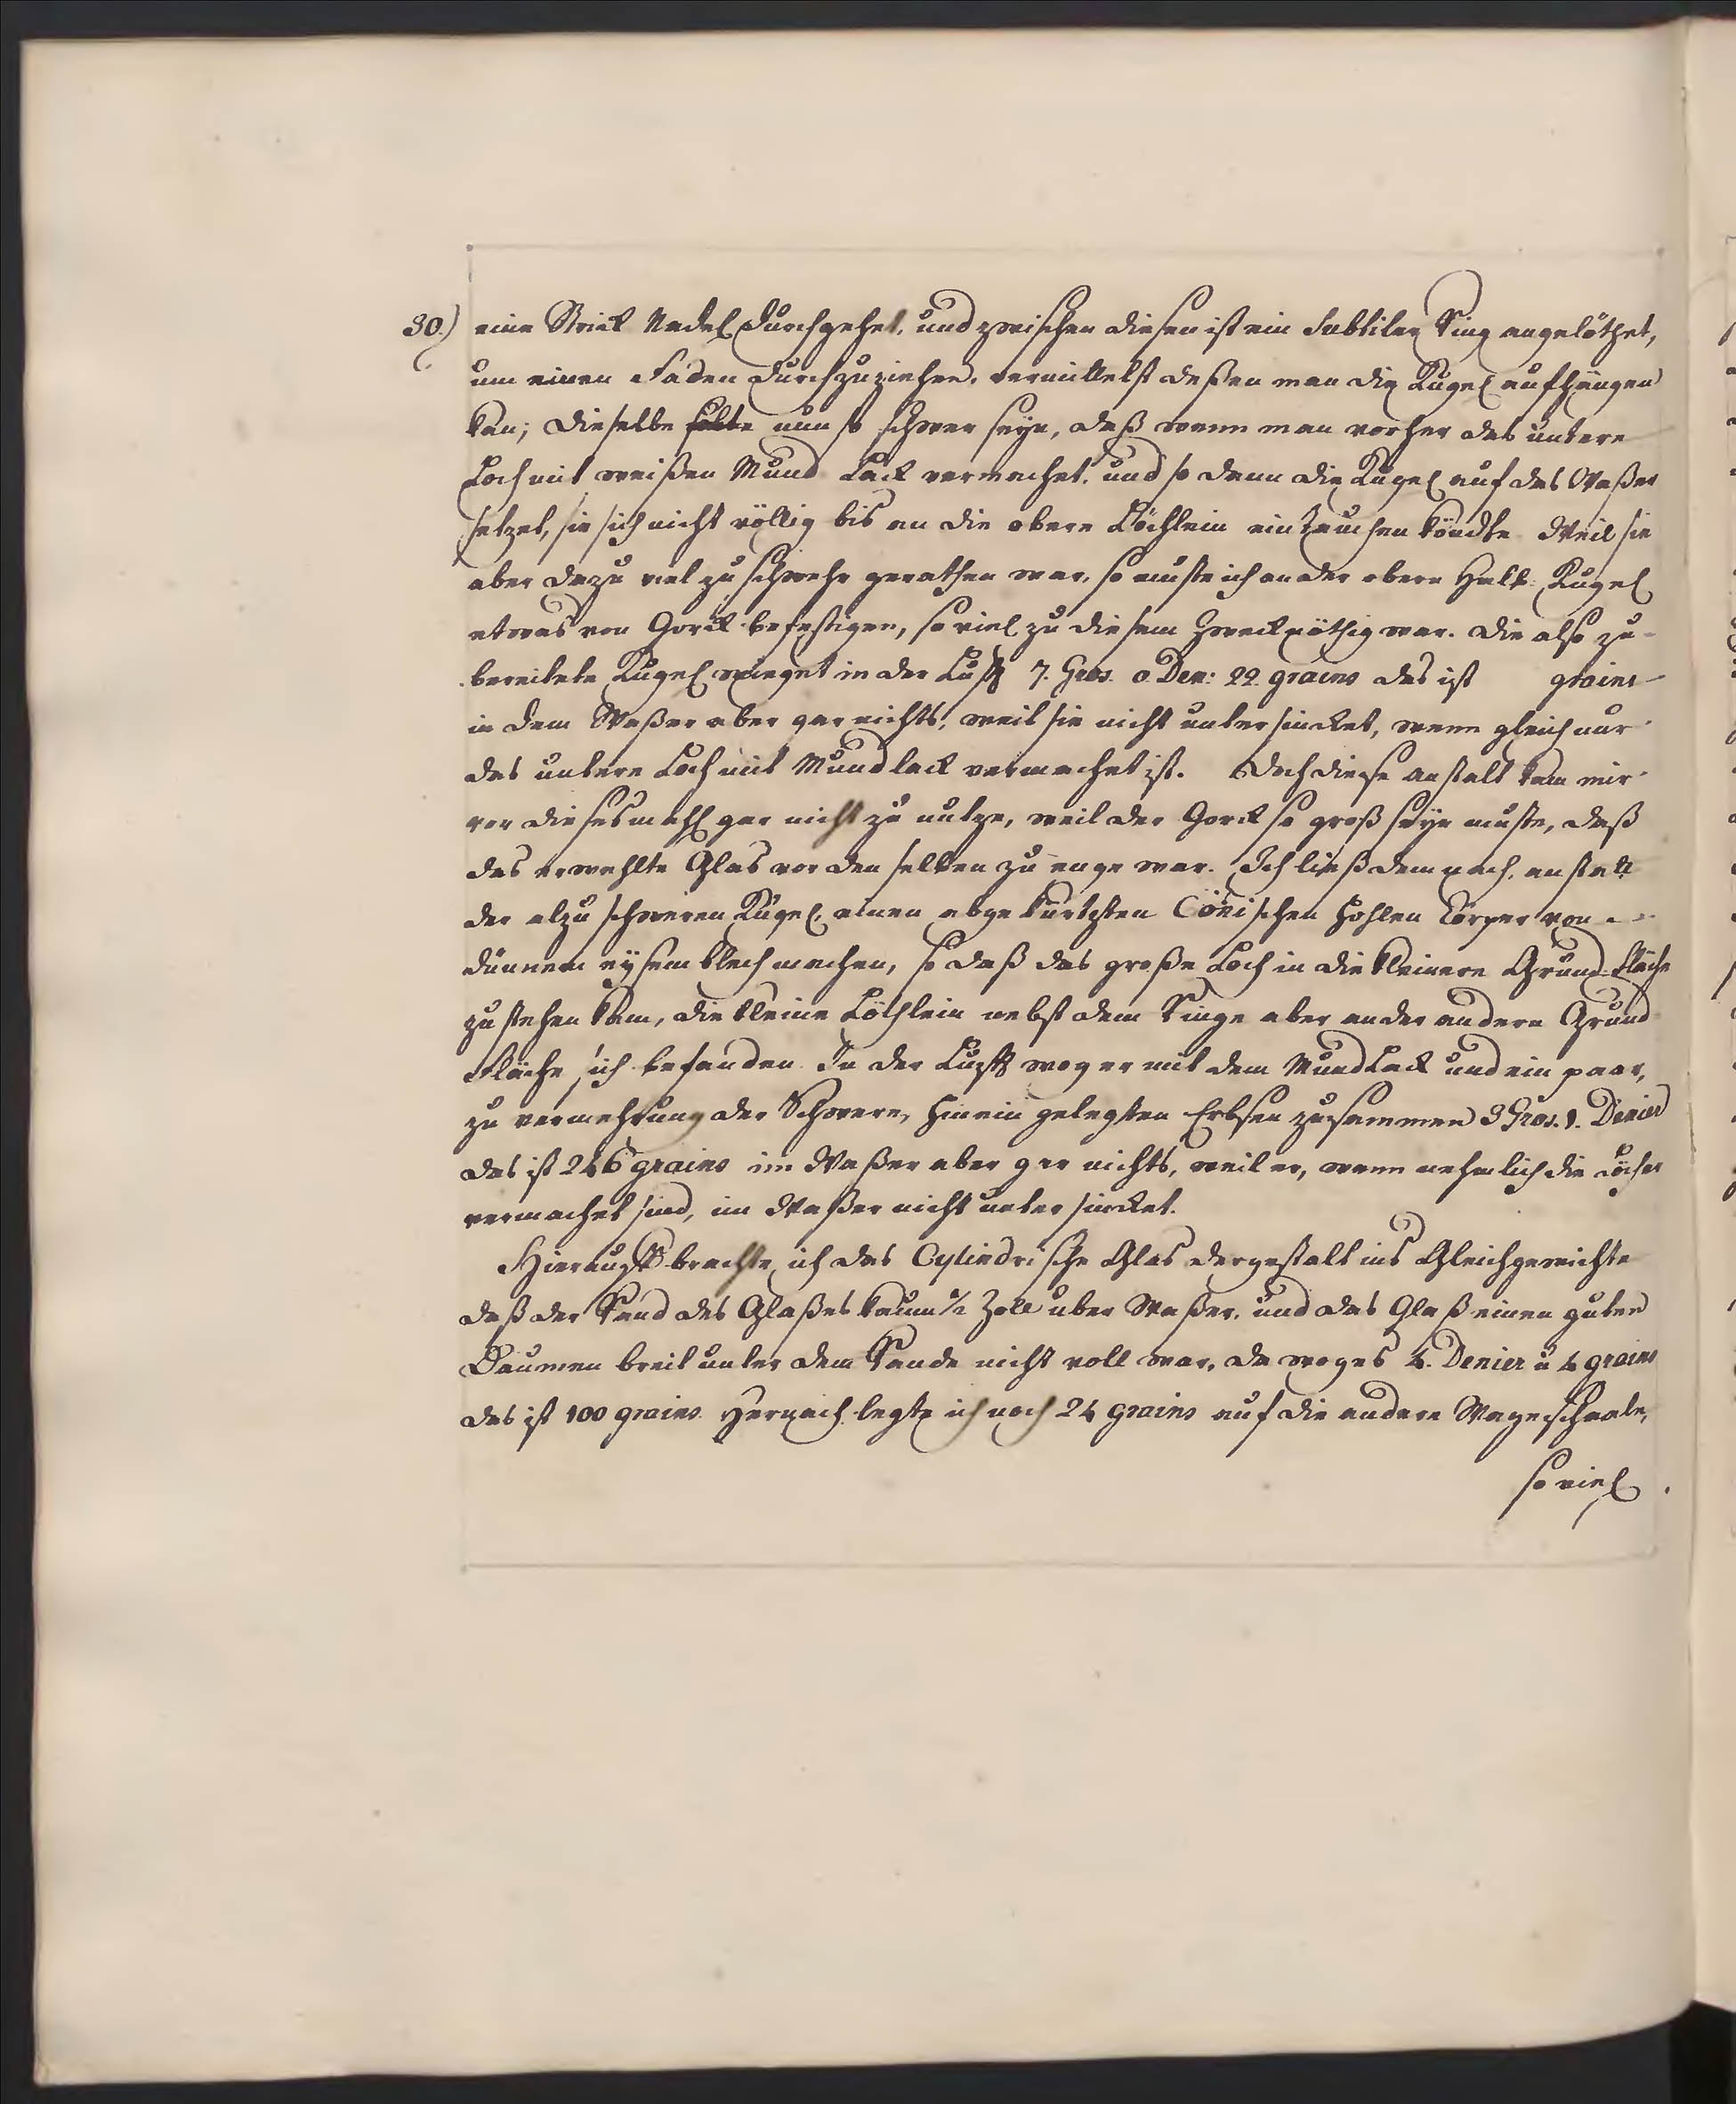 30.) eine Strick Nadel durchgehet, und zwischen diesen ist ein subtiler Ring angelöthet,
um einen Faden durchzuziehen, vermittelst deßen man die Kugel aufhängen
kan; dieselbe solte nun so schwer seyn, daß wenn man vorher das untere
Loch mit weißen Mund Lack vermachet, und so dann die Kugel auf das Waßer
setzet, sie sich nicht völlig bis an die obere Löchlein eintauchen köndte. Weil sie
aber dazu viel zu schwehr gerathen war, so muste ich an der obern Halb-Kugel
etwas von Gorck befestigen, so viel zu diesem Zweck nöthig war. Die also zu-
bereitete Kugel wieget in der Lufft 7. Gros. 0 Den: 22. grains das ist grains
in dem Waßer aber gar nichts, weil sie nicht untersincket, wenn gleich nur
das untere Loch mit Mundlack vermachet ist. Doch diese anstalt kam mir
vor dieses mahl gar nicht zu nutze, weil der Gorck so groß seyn muste, daß
das erwehlte Glas vor denselben zu enge war. Ich ließ demnach, anstatt
der alzu schweren Kugel, einen abgekürtzten Cönischen hohlen Körper von
dünnem eysernblech machen, so daß das große Loch in die kleinere Grund-Fläche
zu stehen kam, die kleine Löchlein nebst dem Ringe aber an der andern Grund-
Fläche sich befanden. In der Lufft wog er mit dem MundLack und ein paar,
zu vermehrung der Schwere, hinein gelegten Erbsen zusammen 3 Gros. 1. Denier
das ist 246 grains im Waßer aber gar nichts, weil er, wenn nehmlich die Löcher
vermachet sind, im Waßer nicht untersincket.
Hierauff brachte ich das Cylindrische Glas dergestalt ins Gleichgewichte
daß der Rand des Glaßes kaum ½ Zoll über Waßer, und das Glaß einen guten
Daumen breit unter dem Rande nicht voll war, da wog es 4. Denier u 4 grains
das ist 100 grains. Hernach legte ich noch 24 grains auf die andere Wageschaale,
so viel